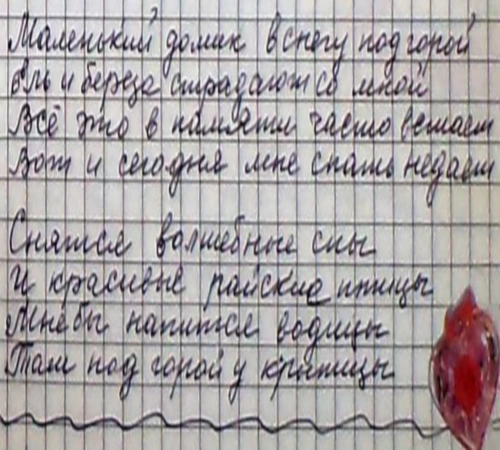 Маленький домик в снегу под горой
Ель и береза страдают со мной
Всё это в памяти часто встает
Вот и сегодня мне спать недает
Снятся волшебные сны
И красивые райские птицы
Мне бы напится водицы
Там под горой у криницы